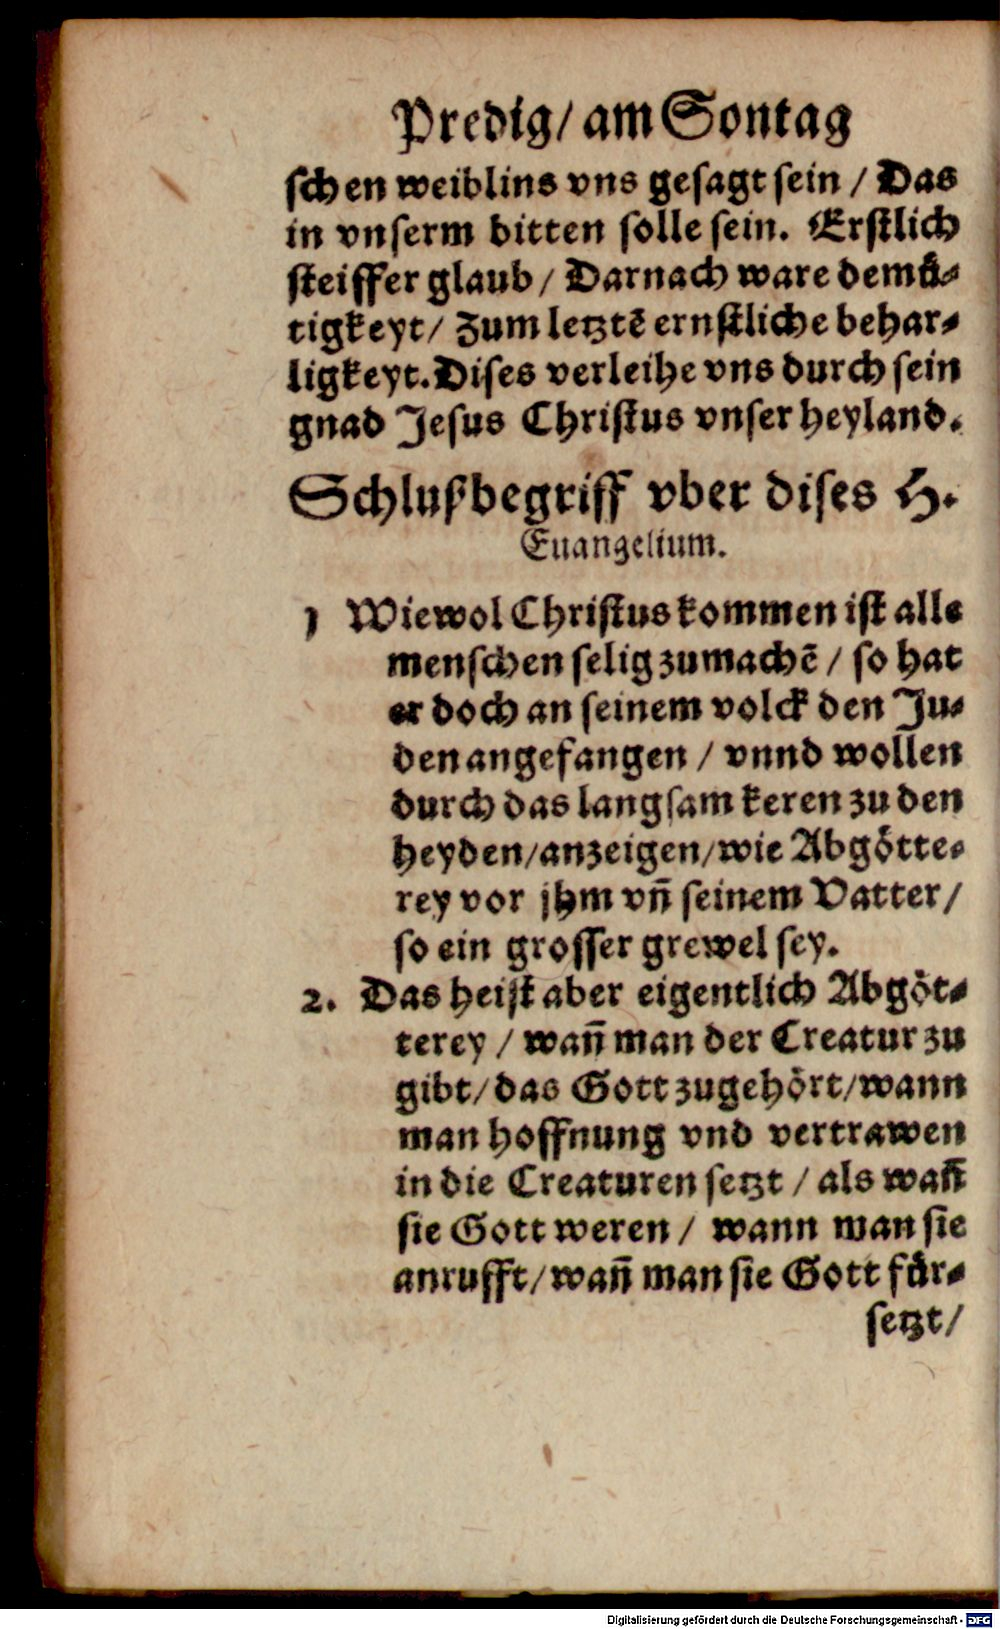 Predig/ am Sontag
schen weiblins vns gesagt sein / Das
in vnserm bitten solle sein. Erstlich
steiffer glaub / Darnach ware demuͤ-
tigkeyt/ Zum letztē ernstliche behar-
ligkeyt. Dises verleihe vns durch sein
gnad Jesus Christus vnser heyland.
Schlußbegriff vber dises H.
Euangelium.
1 Wiewol Christus kommen ist alle
menschen selig zumachē / so hat
er doch an seinem volck den Ju-
den angefangen / vnnd wollen
durch das langsam keren zu den
heyden/anzeigen/wie Abgoͤtte-
rey vor jhm vñ seinem Vatter/
so ein grosser grewel sey.
2. Das heist aber eigentlich Abgoͤt-
terey / wañ man der Creatur zu
gibt/das Gott zugehoͤrt/wann
man hoffnung vnd vertrawen
in die Creaturen setzt / als wañ
sie Gott weren / wann man sie
anrufft/wañ man sie Gott fuͤr-
setzt/
Digitalisierung gefördert durch die Deutsche Forschungsgemeinschaft - DFG